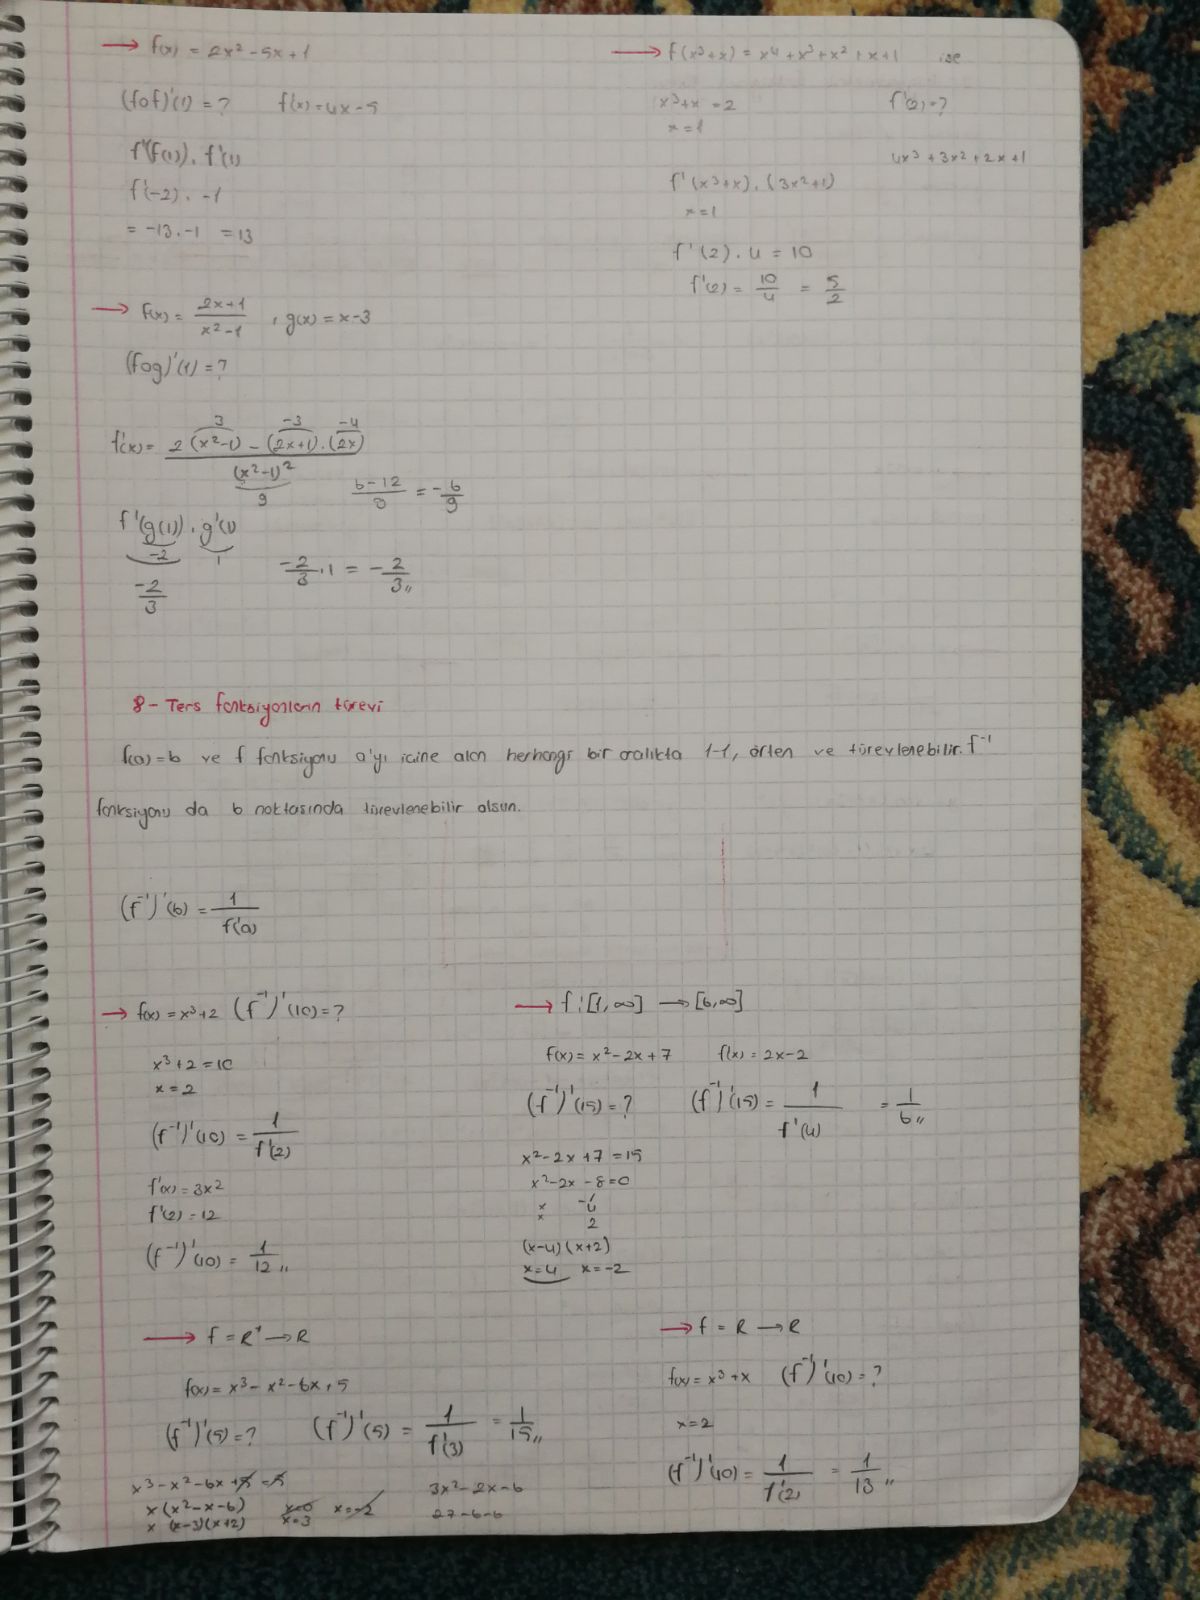 → f(x) = 2x² - 5x + 1
(fof)'(1) = ? f'(x) = 4x - 5
f'(f(1)) . f'(1)
f'(-2) . -1
= -13 . -1 = 13
→ f(x³+x) = x⁴ + x³ + x² + x + 1 ise
x³ + x = 2 f'(2) = ?
x = 1
4x³ + 3x² + 2x + 1
f'(x³+x) . (3x²+1)
x = 1
f'(2) . 4 = 10
f'(2) = 10/4 = 5/2
→ f(x) = (2x+1)/(x²-1) , g(x) = x-3
(fog)'(1) = ?
3 -3 -4
f'(x) = (2(x²-1) - (2x+1).(2x))/(x²-1)²
9
(6-12)/9 = -6/9
f'(g(1)) . g'(1)
-2 1
-2/3
-2/3 . 1 = -2/3 ,,
8- Ters fonksiyonların türevi
f(a) = b ve f fonksiyonu a'yı içine alan herhangi bir aralıkta 1-1, örten ve türevlenebilir. f⁻¹
fonksiyonu da b noktasında türevlenebilir olsun.
(f⁻¹)'(b) = 1/f'(a)
→ f(x) = x³+2 (f⁻¹)'(10) = ?
x³ + 2 = 10
x = 2
(f⁻¹)'(10) = 1/f'(2)
f'(x) = 3x²
f'(2) = 12
(f⁻¹)'(10) = 1/12 ,,
→ f : [1, ∞] → [6, ∞]
f(x) = x² - 2x + 7 f(x) = 2x - 2
(f⁻¹)'(15) = ? (f⁻¹)'(15) = 1/f'(4) = 1/6 ,,
x² - 2x + 7 = 15
x² - 2x - 8 = 0
x -4
x 2
(x-4)(x+2)
x = 4 x = -2
→ f = R⁺ → R
f(x) = x³ - x² - 6x + 5
(f⁻¹)'(5) = ? (f⁻¹)'(5) = 1/f'(3) = 1/15 ,,
x³ - x² - 6x + 5 = 5
x (x² - x - 6) x=0 x=-2
x (x-3)(x+2) x=3
3x² - 2x - 6
27 - 6 - 6
→ f = R → R
f(x) = x³ + x (f⁻¹)'(10) = ?
x = 2
(f⁻¹)'(10) = 1/f'(2) = 1/13 ,,